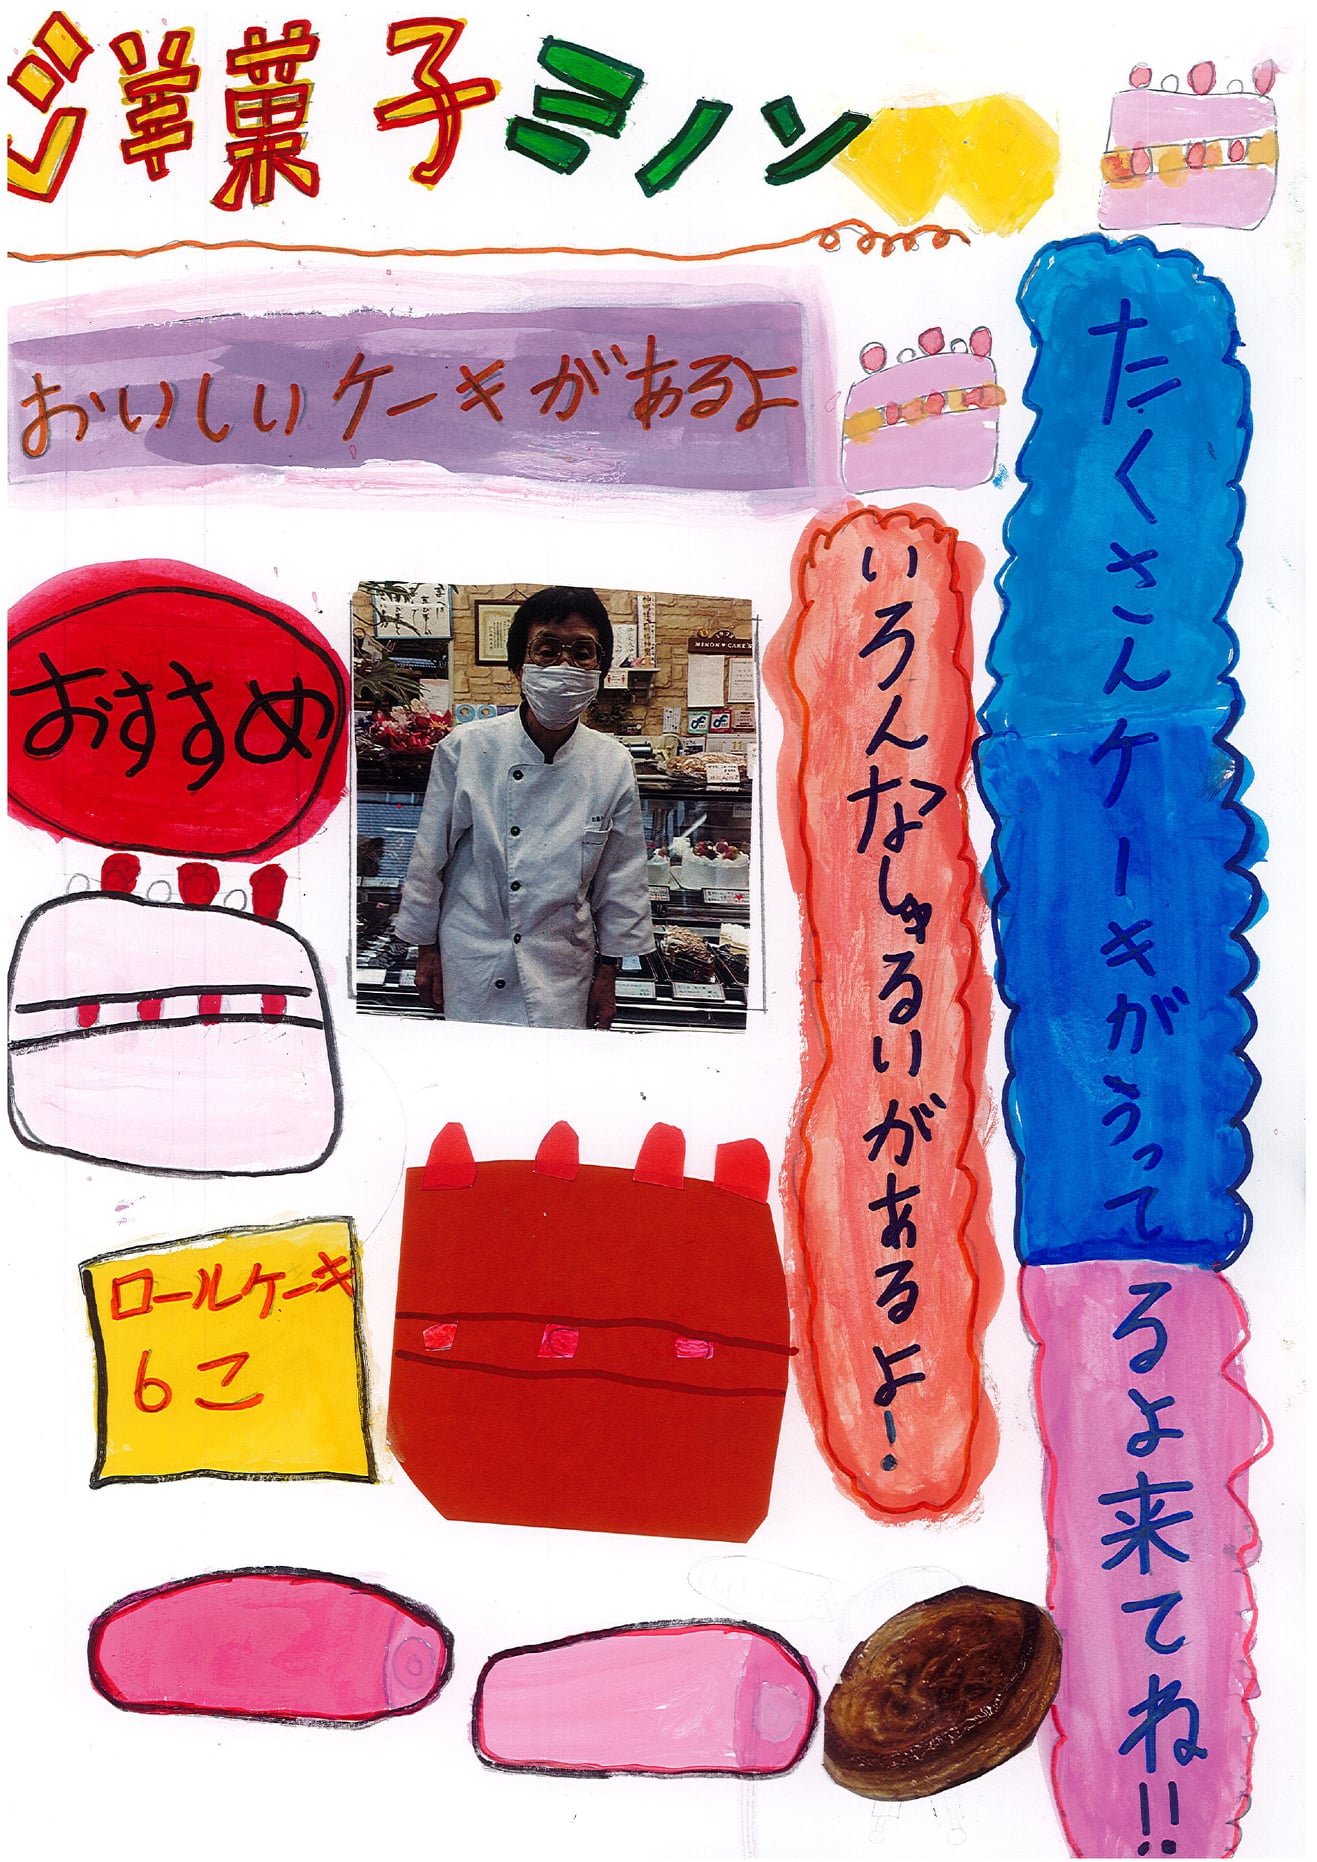 洋菓子ミノン
おいしいケーキがあるよ
たくさんケーキがうってるよ来てね!!
いろんなしゅるいがあるよ!
おすすめ
MINON♥CAKE'S
ロールケーキ
6こ